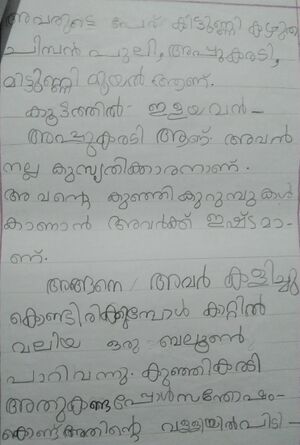 അവരുടെ പേര് കിട്ടുണ്ണി കഴുത
ചിമ്പൻ പുലി, അപ്പുകരടി,
മിട്ടുണ്ണി മുയൽ ആണ്.
കൂട്ടത്തിൽ ഇളയവൻ –
അപ്പുകരടി ആണ്. അവൻ
നല്ല കുസൃതിക്കാരനാണ്.
അവന്റെ കുഞ്ഞികുറുമ്പുകൾ
കാണാൻ അവർക്ക് ഇഷ്ടമാ-
ണ്.
അങ്ങനെ അവർ കളിച്ചു
കൊണ്ടിരിക്കുമ്പോൾ കാറ്റിൽ
വലിയ ഒരു ബലൂൺ
പാറിവന്നു. കുഞ്ഞികരടി
അതുകണ്ടപ്പോൾ സന്തോഷം-
കൊണ്ട് അതിന്റെ വള്ളിയിൽ പിടി –